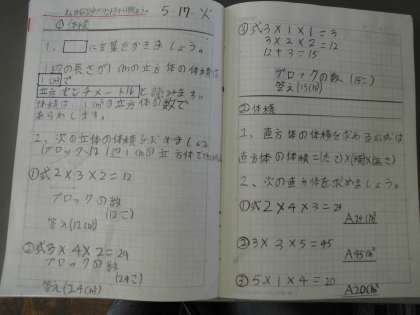 5・17・火
①体積
1、□に言葉をかきましょう。
1辺の長さが1cmの立方体の体積は
1cm³で
立方センチメートルと読みます。
体積は1cm³の立方体の数で
あらわします。
2、次の立体の体積を求めましょう
①式2×3×2=12
ブロックの数
(12こ)
答え(12cm³)
②式3×4×2=24
ブロックの数
(24こ)
答え(24cm³)
③式3×1×1=3
3×2×2=12
12+3=15
ブロックの数(15こ)
答え15cm³
②体積
1、直方体の体積を求める公式は
直方体の体積=(たて)×(横)×(高さ)
2、次の直方体を求めましょう。
①式2×4×3=24
A24cm³
②3×3×5=45
A45cm³
③5×1×4=20
A20cm³